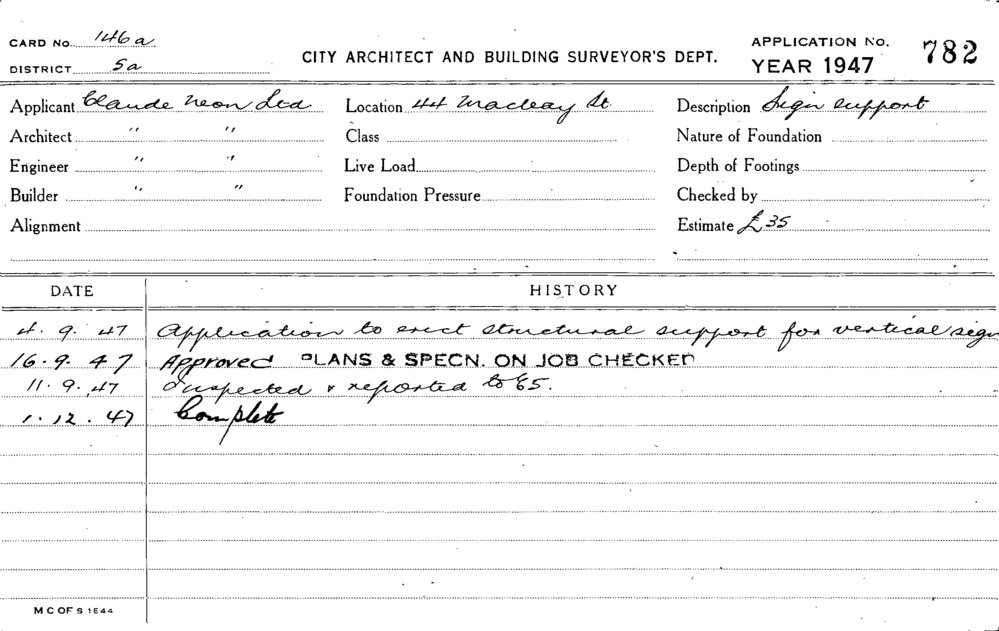 CARD No. 146a
DISTRICT 5a
CITY ARCHITECT AND BUILDING SURVEYOR'S DEPT.
APPLICATION No. 782
YEAR 1947
Applicant Claude Neon Ltd Location 44 Macleay St. Description Sign support
Architect " " Class Nature of Foundation
Engineer " " Live Load Depth of Footings
Builder " " Foundation Pressure Checked by
Alignment Estimate £35
DATE HISTORY
4. 9. 47 Application to erect structural support for vertical sign
16. 9. 47 Approved PLANS & SPECN. ON JOB CHECKED
11. 9. 47 Inspected & reported to
1. 12. 47 Complete
M C OF S 1844